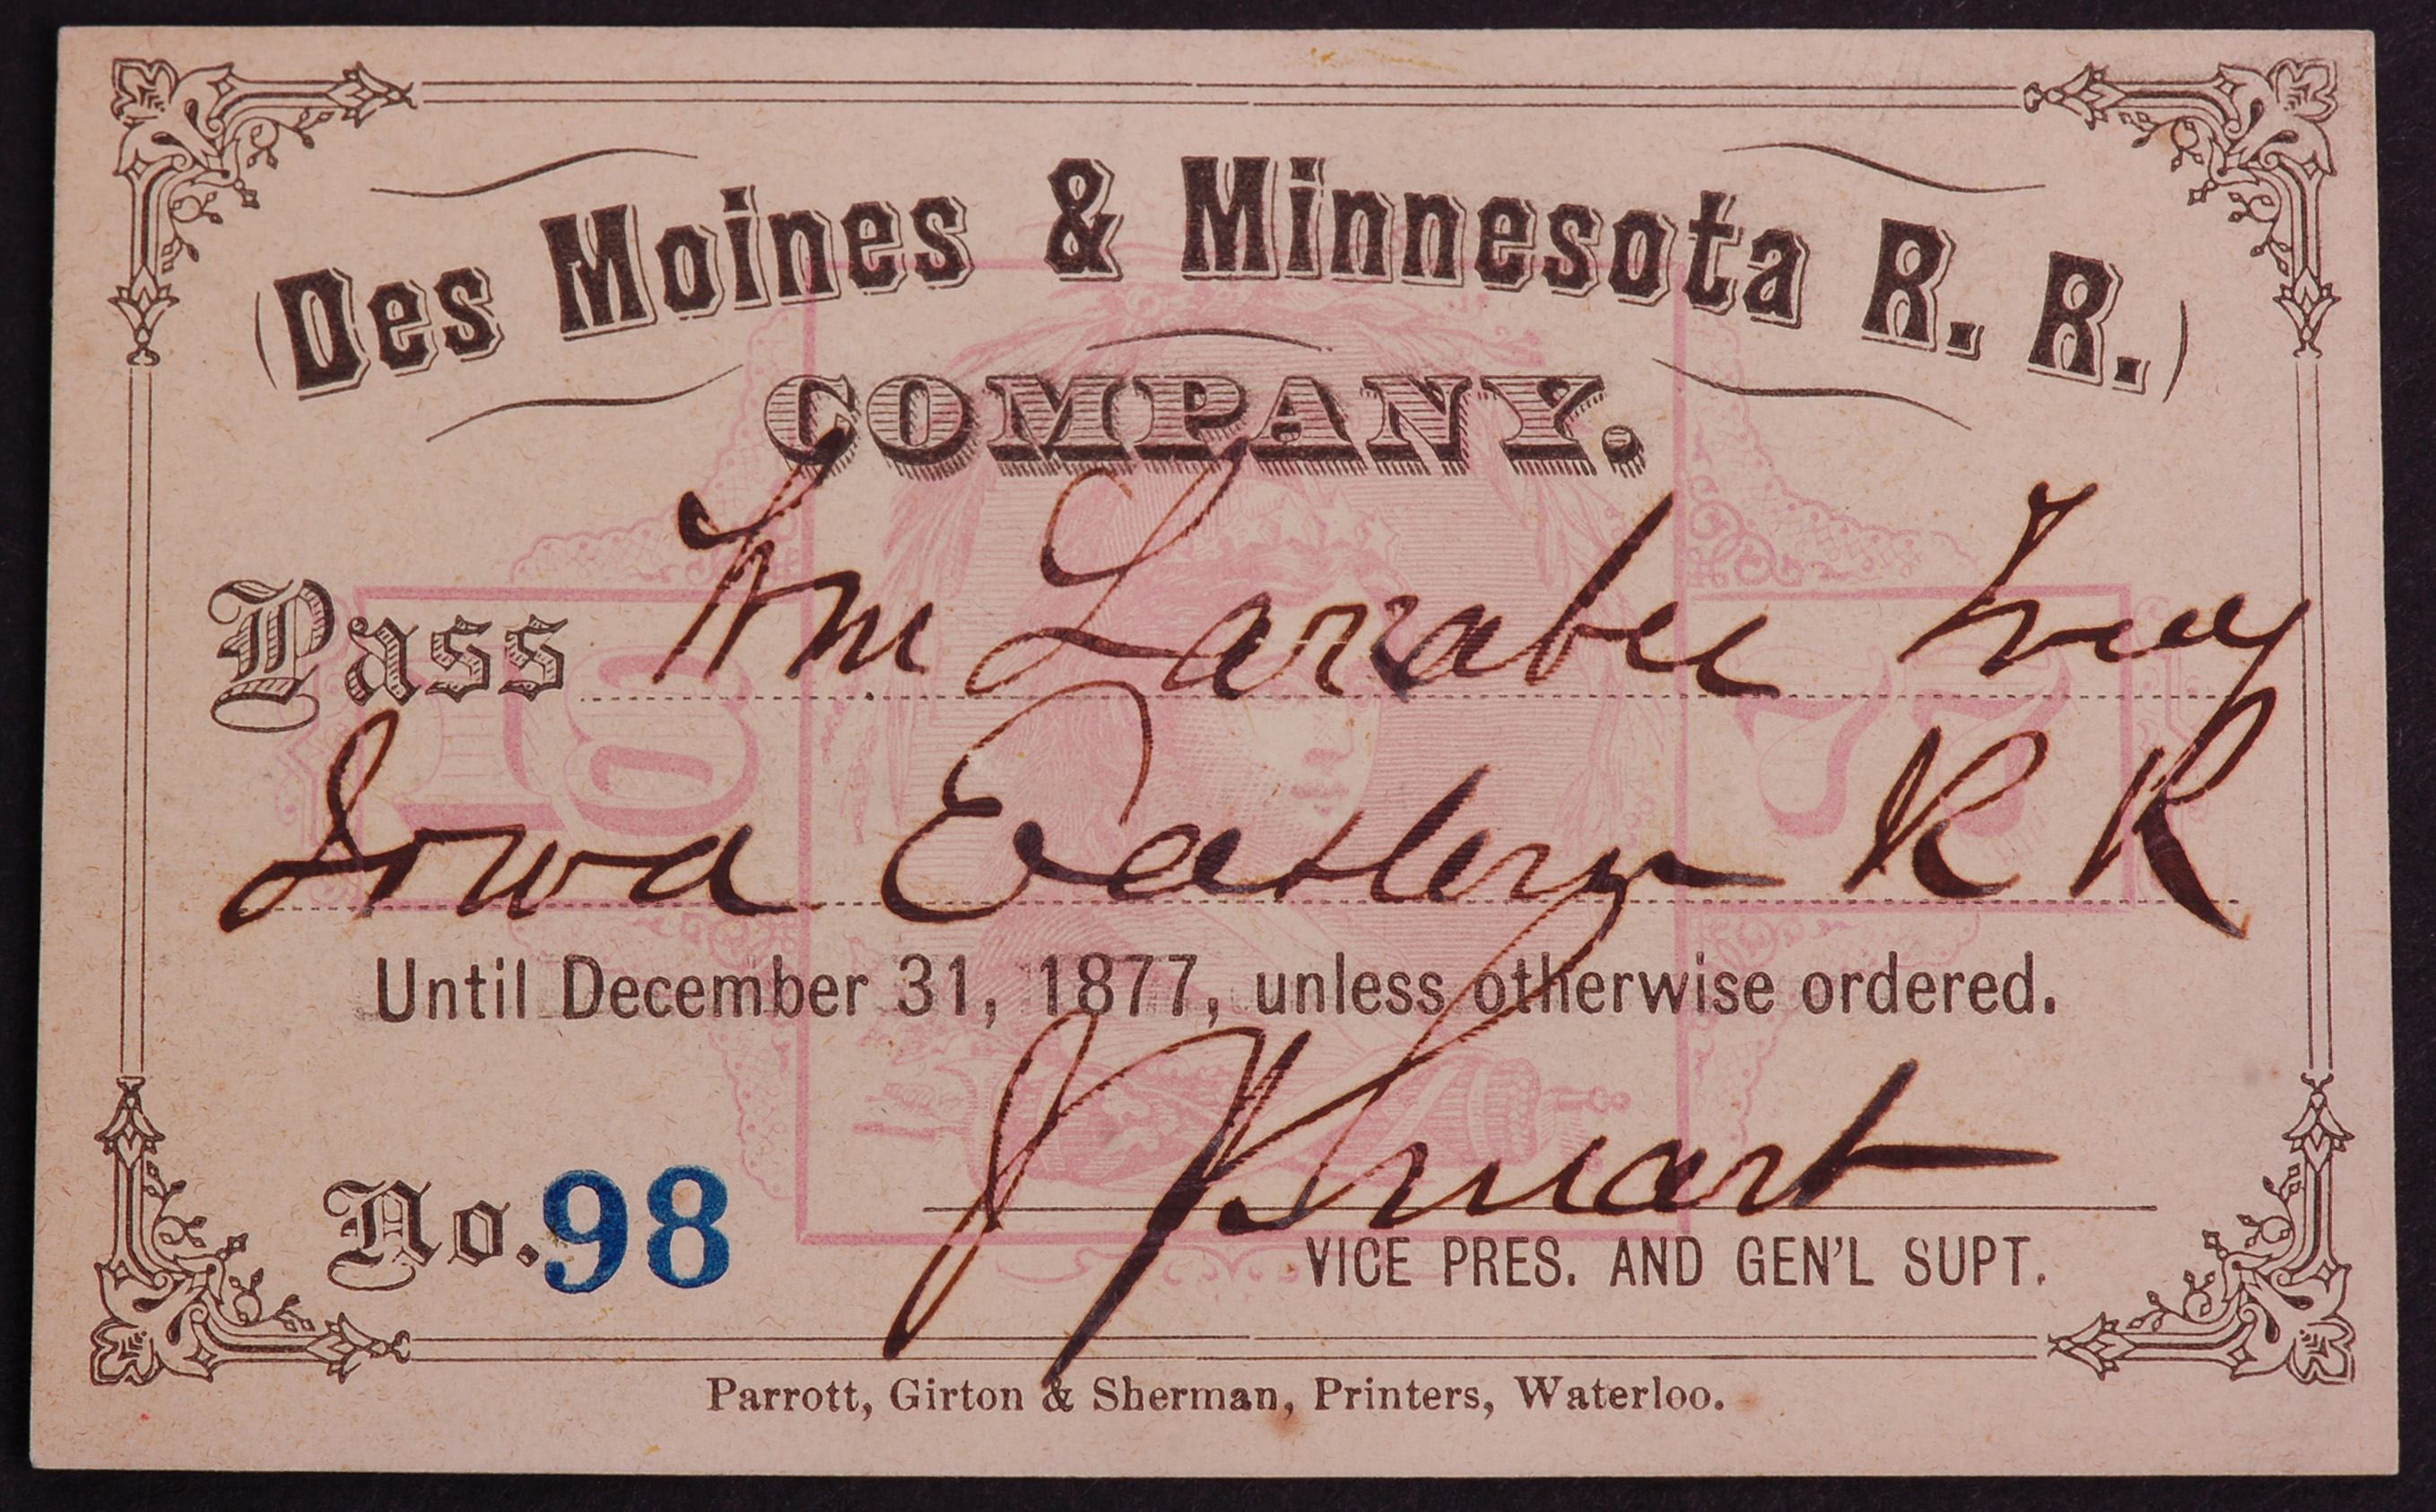 Des Moines & Minnesota R. R.
COMPANY.
Pass Wm Larrabee Trea
Iowa Eastern R R
18 77
Until December 31, 1877, unless otherwise ordered.
No. 98
VICE PRES. AND GEN'L SUPT.
Parrott, Girton & Sherman, Printers, Waterloo.